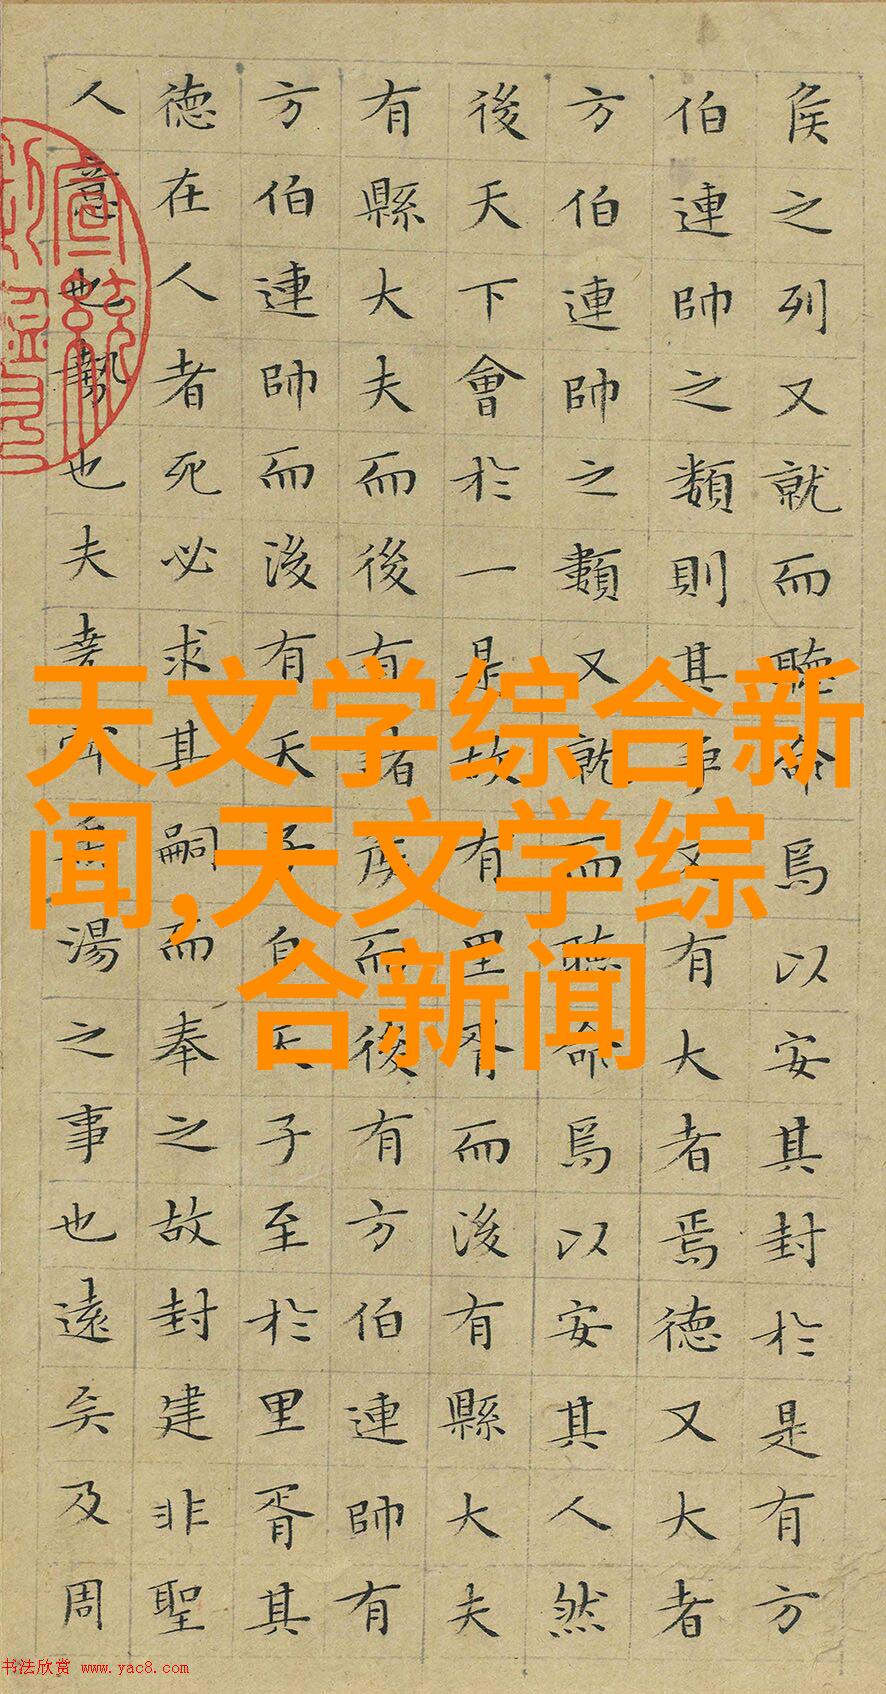 侯之列又就而聽命焉以安其封於是有方
伯連帥之類則其爭又有大者焉德又大者
方伯連帥之類又就而聽命焉以安其人然
後天下會於一是故有里胥而後有縣大夫
有縣大夫而後有諸侯而後有方伯連帥有
方伯連帥而後有天子自天子至於里胥其
德在人者死必求其嗣而奉之故封建非聖
人意也勢也夫堯舜禹湯之事也遠矣及周
天文学综合新
闻,天文学综
合新闻
书法欣赏 www.yac8.com